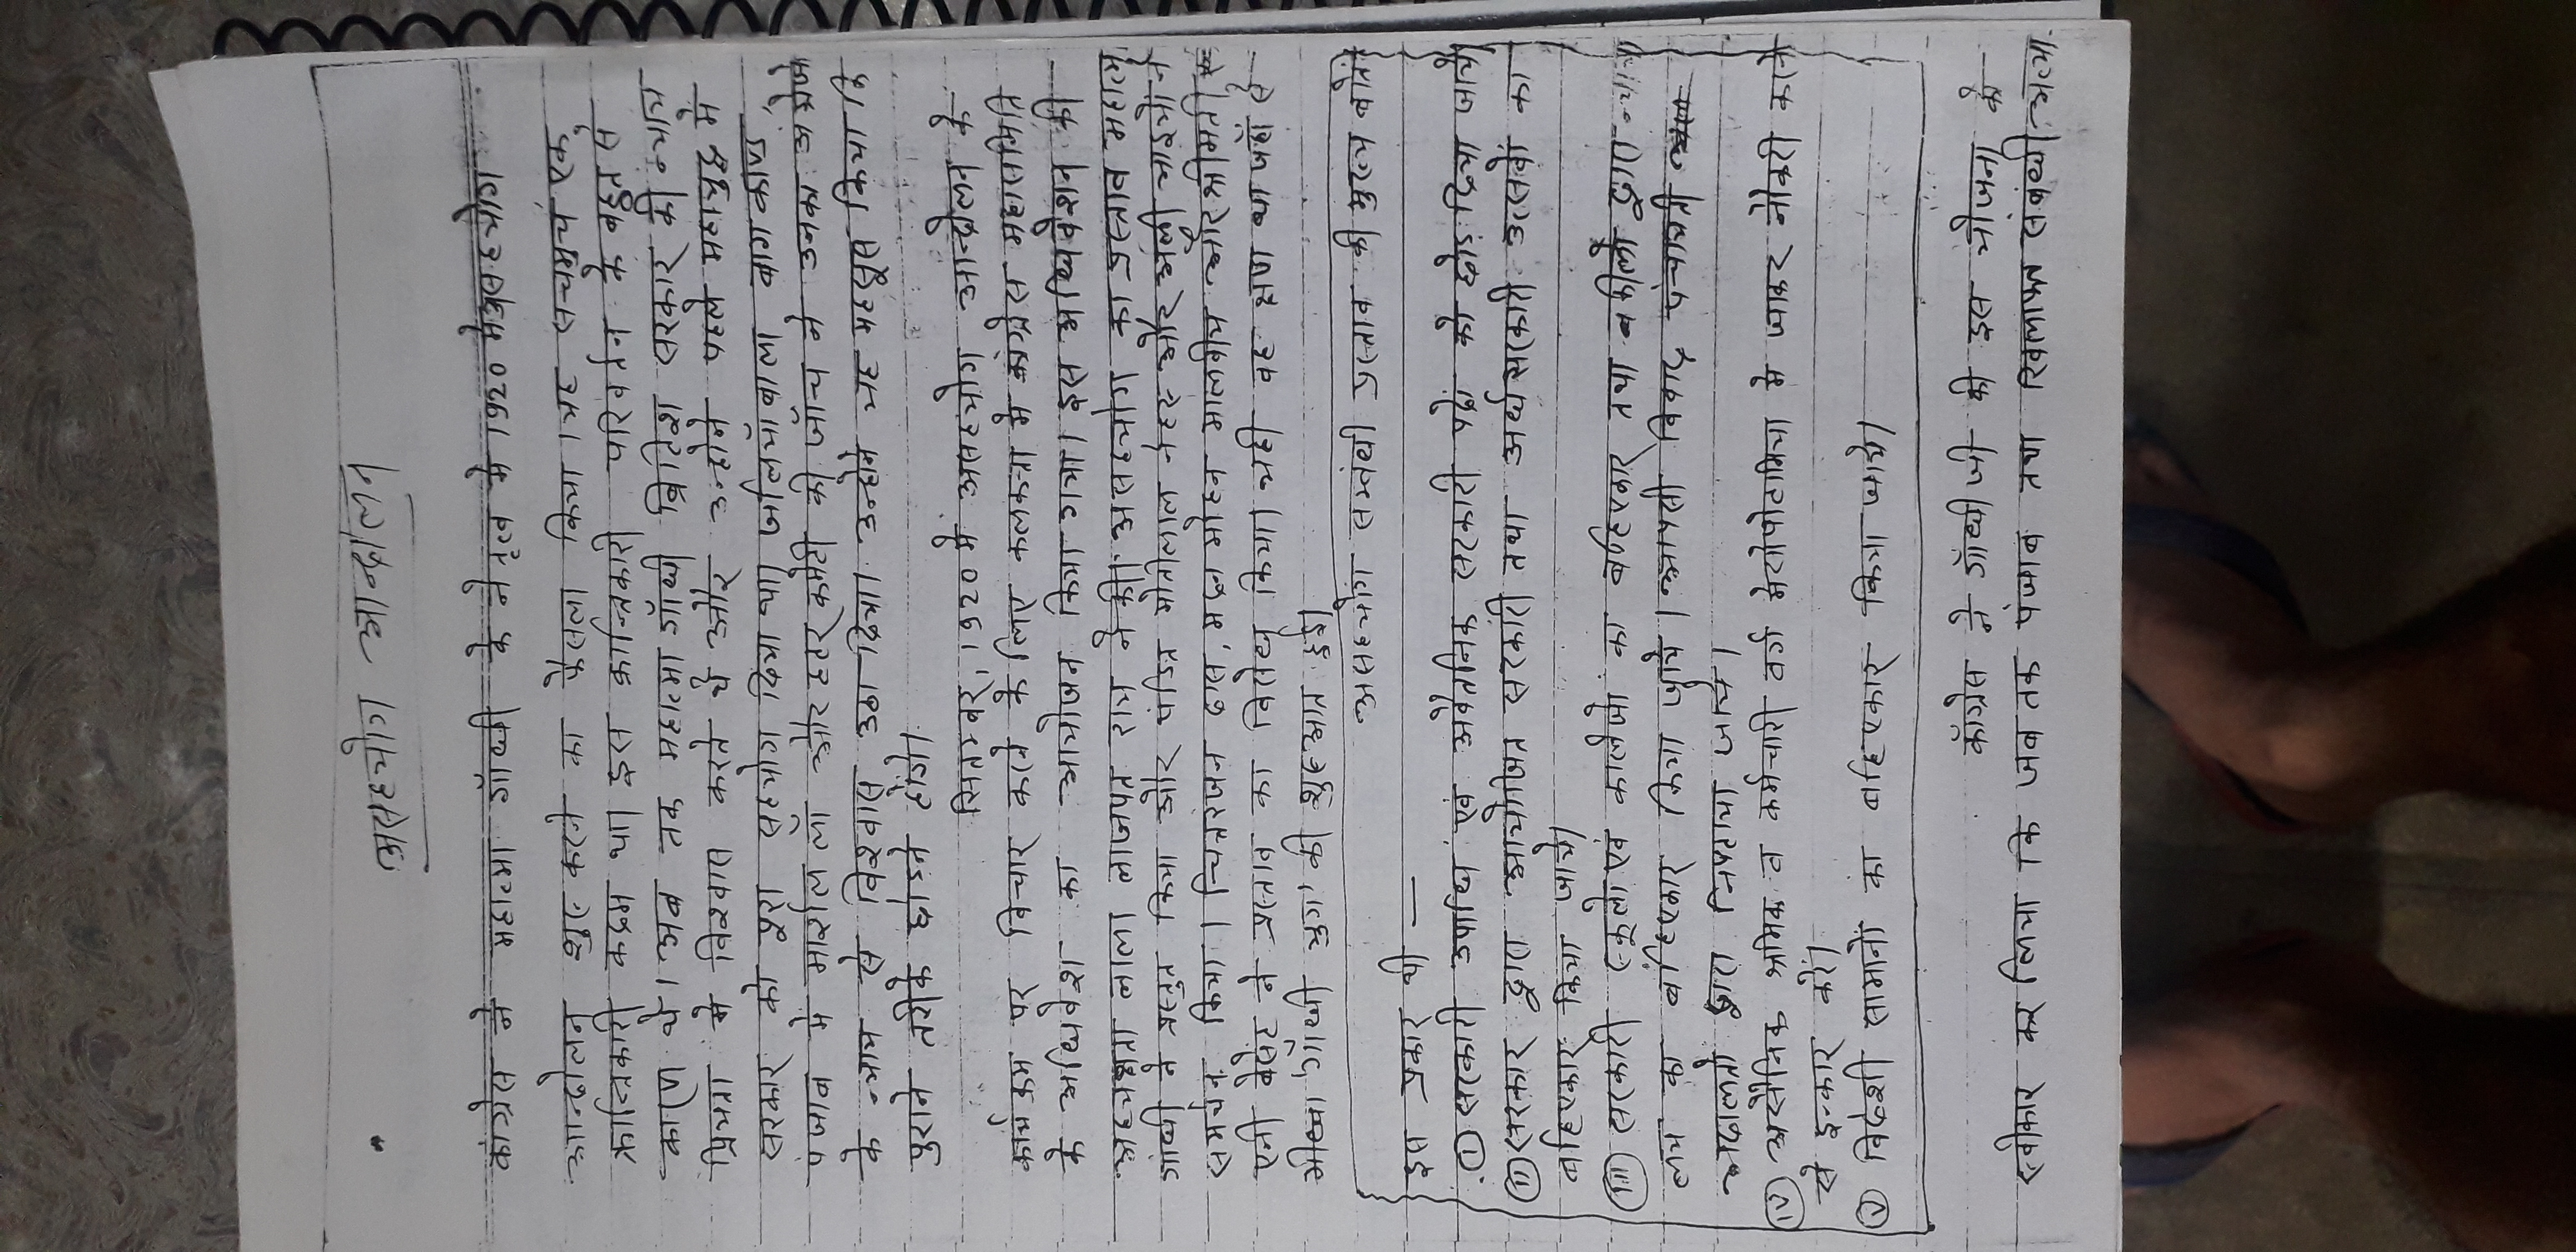 असहयोग आन्दोलन
कांग्रेस ने महात्मा गाँधी के नेतृत्व में 1920 में असहयोग
आन्दोलन शुरू करने का फैसला किया। यह सचमुच एक
क्रान्तिकारी कदम था। इस क्रान्तिकारी परिवर्तन के बहुत से
कारण थे। अब तक महात्मा गाँधी ब्रिटिश सरकार की न्याय
प्रियता में विश्वास करते थे और उन्होंने पहले महायुद्ध में
सरकार को पूरा सहयोग दिया था। जलियाँवाला बाग काण्ड,
पंजाब में मार्शल लॉ और हंटर कमेटी की जाँच ने उनका अंग्रेजो
के न्याय से विश्वास उठा दिया। उन्होंने यह महसूस किया कि
पुराने तरीके छोड़ने होंगे।
सितम्बर, 1920 में असहयोग आन्दोलन के
कार्यक्रम पर विचार करने के लिए कलकत्ता में कांग्रेस महासमिति
के अधिवेश का आयोजन किया गया। इस अधिवेशन की
अध्यक्षता लाला लाजपत राय ने की। असहयोग का प्रस्ताव महात्मा
गांधी ने प्रस्तुत किया और पंडित मोतीलाल नेहरू और अली भाइयों ने
समर्थन किया। चितरंजन दास, मदन मोहन मालवीय और श्रीमती
एनी बेसेंट ने प्रस्ताव का विरोध किया। यही वह क्षण था जहाँ से
गाँधी युग की शुरुआत हुई।
असहयोग सम्बंधी प्रस्ताव की मुख्य बातें
इस प्रकार थी —
(I) सरकारी उपाधि एवं अवैतनिक सरकारी पदों को छोड़ दिया जाये
(II) सरकार द्वारा आयोजित सरकारी तथा अर्धसरकारी उत्सवों का
बहिष्कार किया जाये।
(III) सरकारी स्कूलों एवं कालेजों का बहिष्कार तथा वकीलों द्वारा न्याया
लय का बहिष्कार किया जाये। आपसी विवाद पंचायती
अदालतों द्वारा निपटाया जाये।
(IV) असैनिक श्रमिक व कर्मचारी वर्ग मेसोपोटामिया में जाकर नौकरी करने
से इन्कार करें।
(V) विदेशी सामानों का बहिष्कार किया जाये।
काँग्रेस ने गाँधी जी की इस योजना को
स्वीकार कर लिया कि जब तक पंजाब तथा खिलाफत संबंधी अत्या